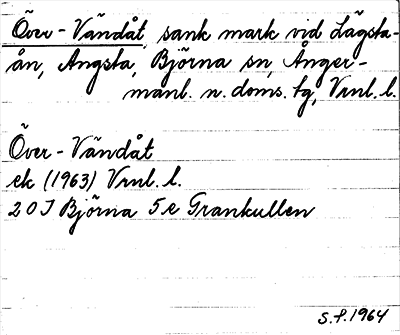 Över-Vändåt, sank mark vid Lägsta-
ån, Angsta, Björna sn, Ånger-
manl. n. doms. tg, Vrnl. l.
Över-Vändåt
ek (1963) Vrnl. l.
20J Björna 5e Grankullen
S.F. 1964